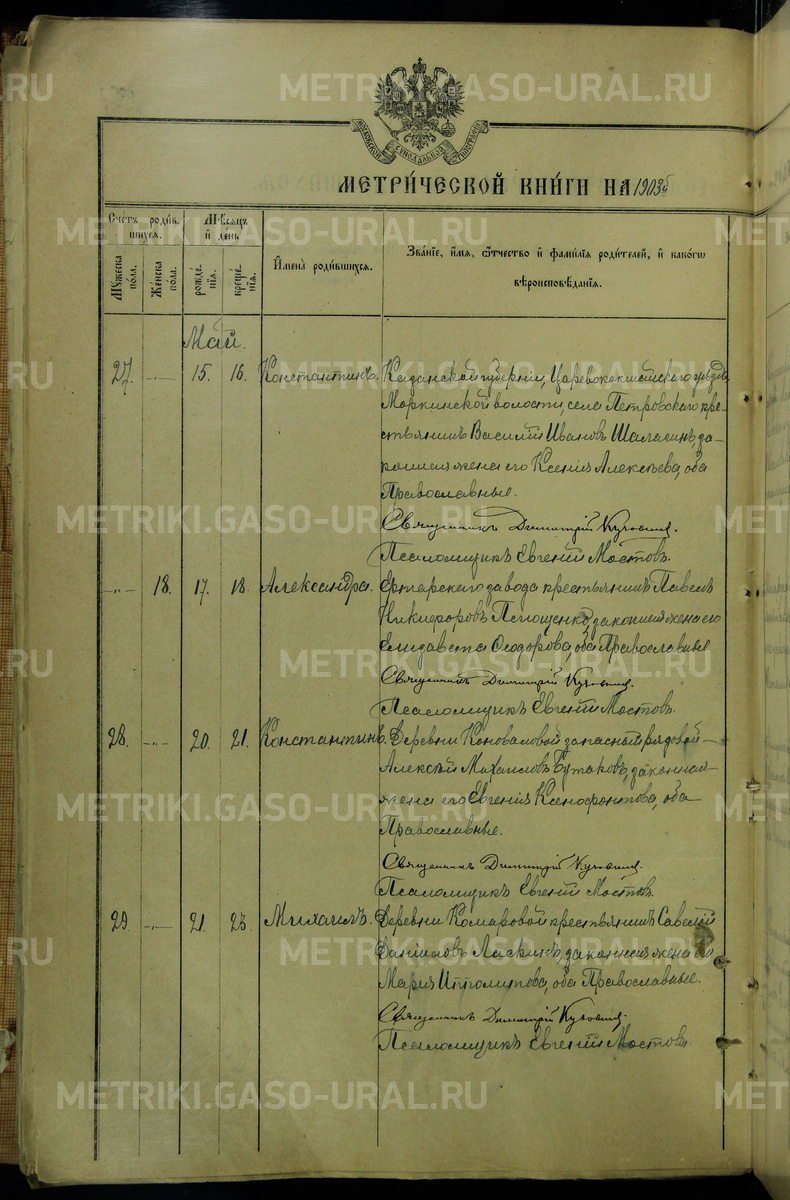 МОСКОВСКОЙ СѴНОДАЛЬНОЙ ТИПОГРАФІИ
МЕТРИ́ЧЕСКОЙ КНИ́ГИ НА 1903й
Сче́тъ роди́в-
шихся.
Мѣсяцъ
и҆ де́нь
Му́жеска
по́ла.
Же́нска
по́ла.
рожде́-
нія.
креще́-
нія.
И҆мена̀ роди́вшихся.
Зва́ніе, и҆́мя, ѻ҆́тчество и҆ фами́лія роди́телей, и҆ како́гѡ
вѣроисповѣ́данія.
Май.
27. —„— 15. 16. Константинъ. Казанской губерніи, Царевококшайскаго уѣзда,
Моркинской волости, села Петровскаго кре-
стьянинъ Василій Ивановъ за-
конная жена его Ксенія Алексѣева, оба
Православные.
Священникъ Димитрій
Псаломщикъ Евгеній Мостовъ.
—„— 18. 17. 18. Александра. Ертарскаго завода крестьянинъ Павелъ
Никифоровъ законная жена его
Елизавета Ѳеодорова, оба Православные
Священникъ Димитрій
Псаломщикъ Евгеній Мостовъ.
28. —„— 20. 21. Константинъ. Деревни Коноваловой запасный рядовой
Алексѣй Михаиловъ Бутаковъ, законная
жена его Евгенія Ксенофонтова, оба
Православные.
Священникъ Димитрій
Псаломщикъ Евгеній Мостовъ.
29. —„— 21. 23. Михаилъ. Деревни Комаровой крестьянинъ Савелій
Данииловъ Ласкинъ, законная жена его
Марія Ипполитова, оба Православные.
Священникъ Димитрій
Псаломщикъ Евгеній Мостовъ
METRIKI.GASO-URAL.RU